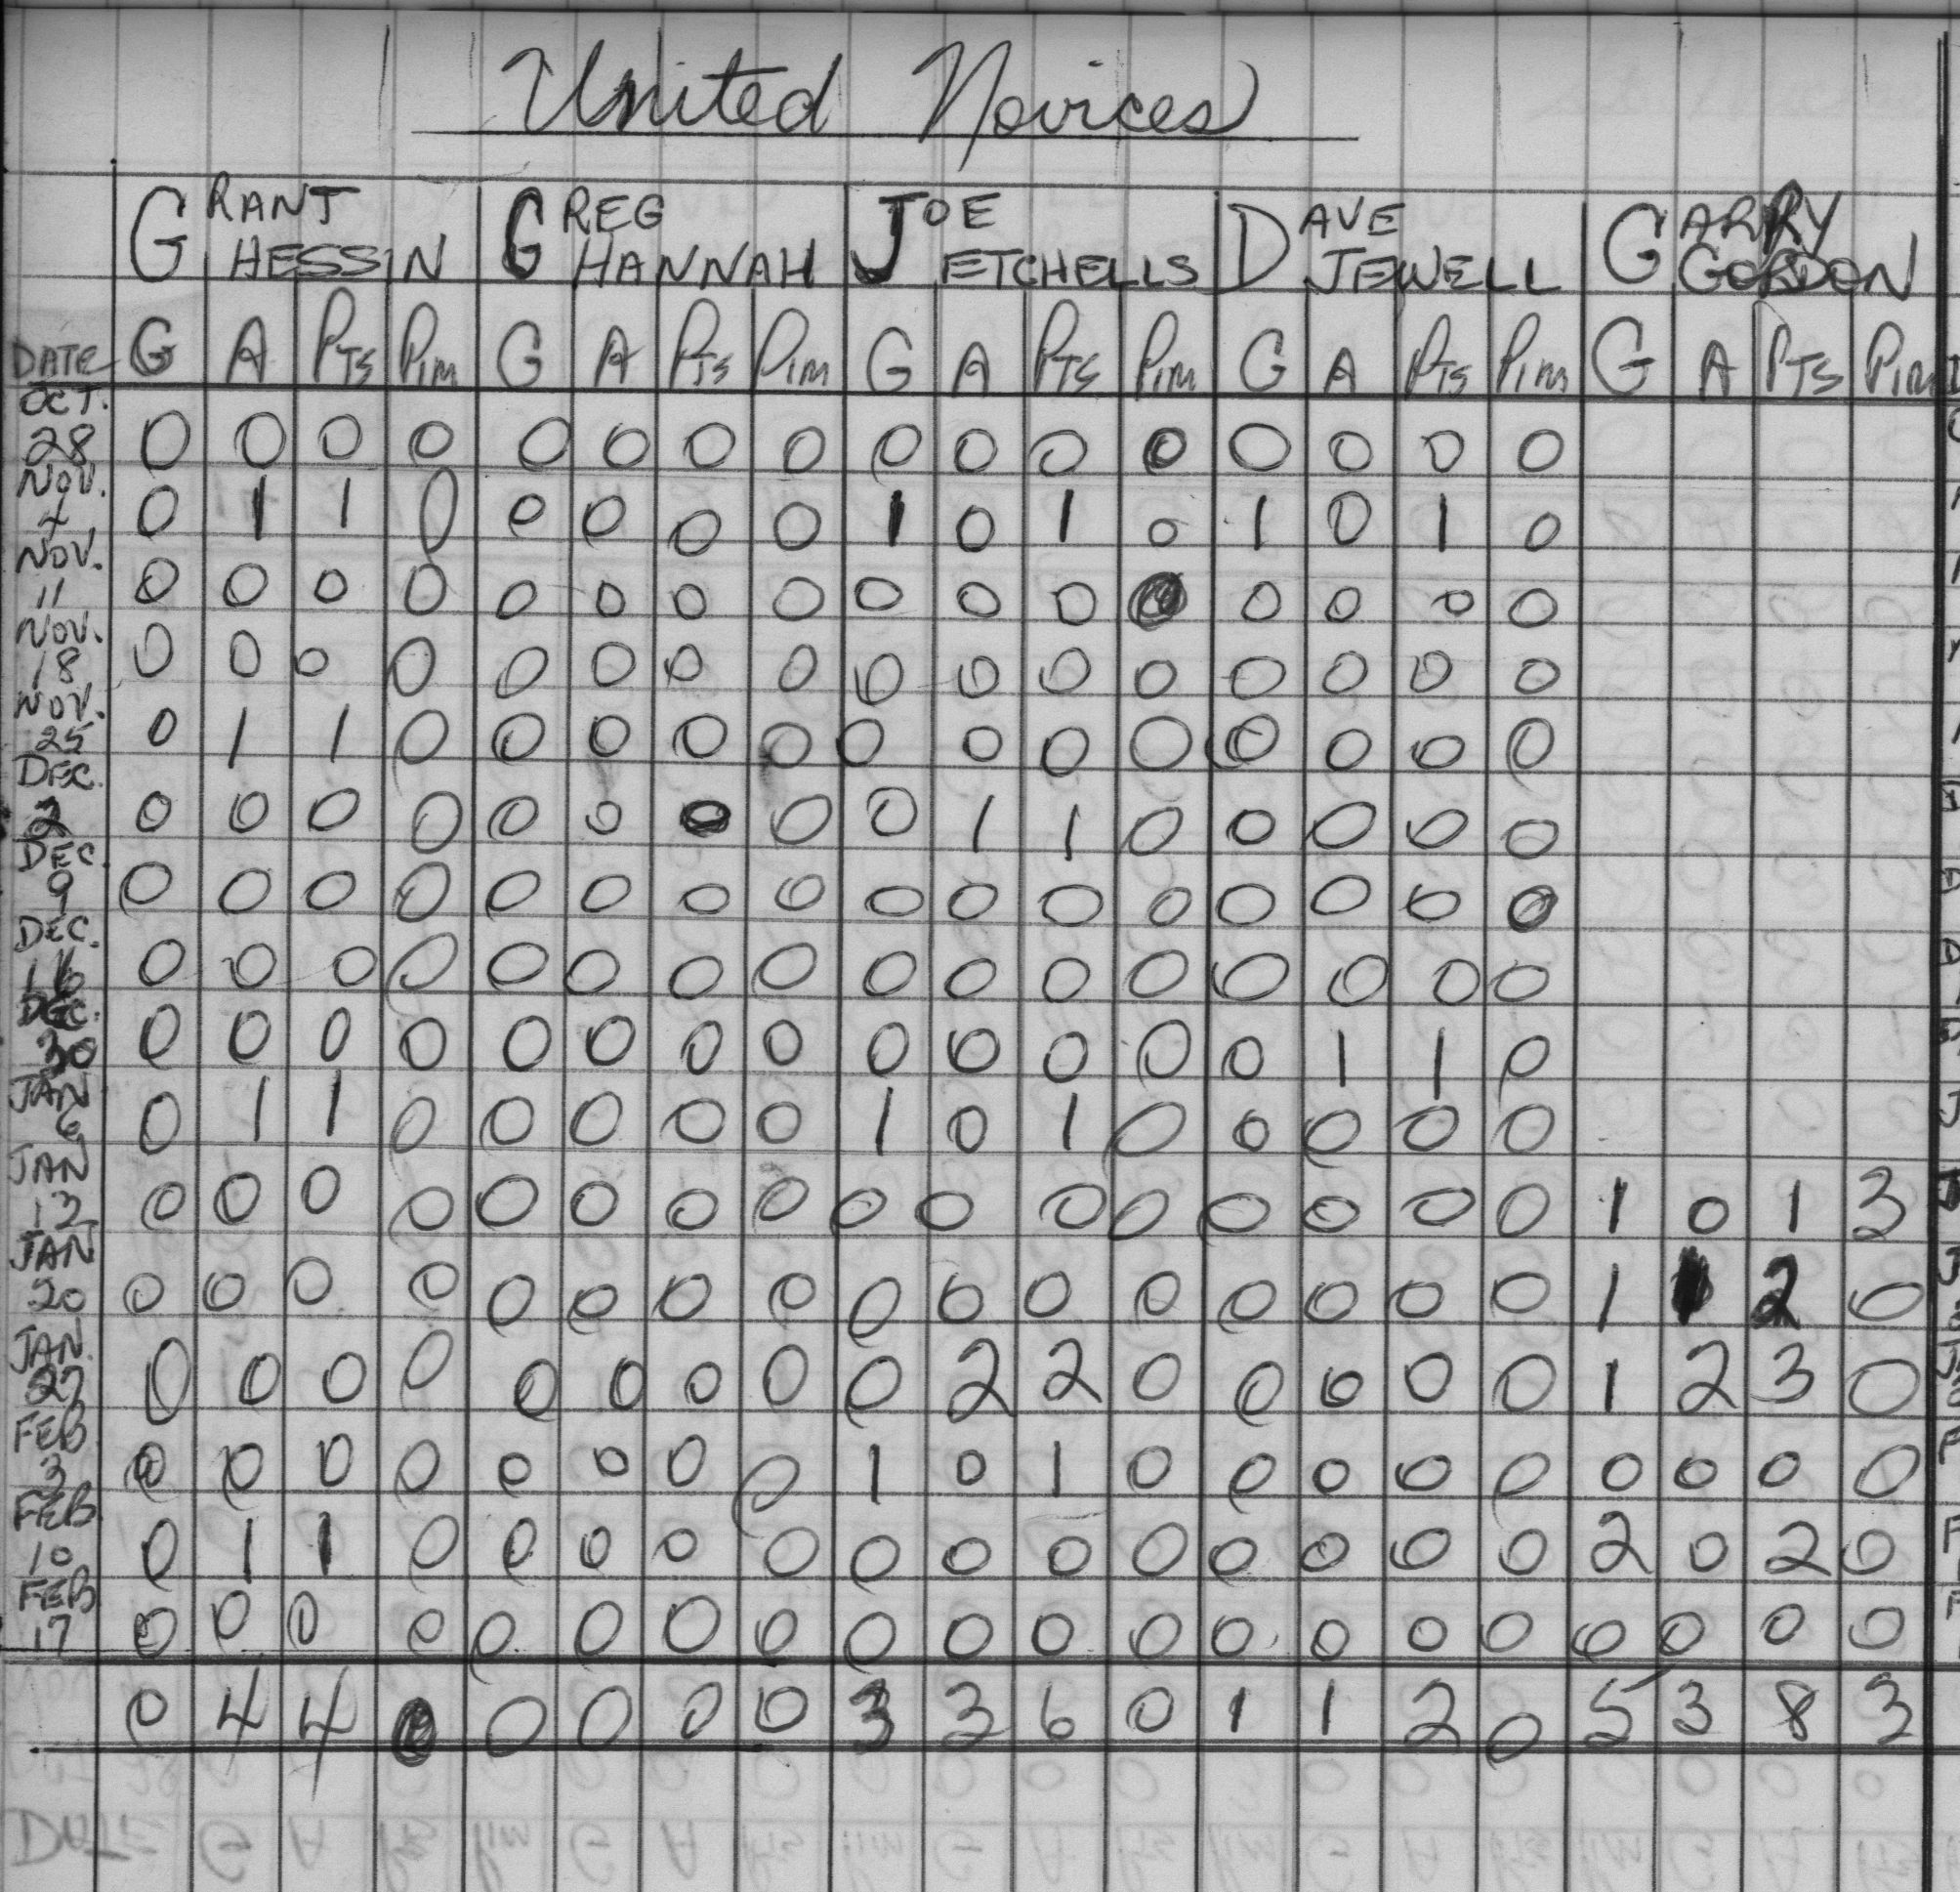 United Novices
GRANT HESSIN GREG HANNAH JOE ETCHELLS DAVE JEWELL GARRY GORDON
DATE G A PTS PIM G A PTS PIM G A PTS PIM G A PTS PIM G A PTS PIM
OCT. 28 0 0 0 0 0 0 0 0 0 0 0 0 0 0 0 0
NOV. 4 0 1 1 0 0 0 0 0 1 0 1 0 1 0 1 0
NOV. 11 0 0 0 0 0 0 0 0 0 0 0 0 0 0 0 0
NOV. 18 0 0 0 0 0 0 0 0 0 0 0 0 0 0 0 0
NOV. 25 0 1 1 0 0 0 0 0 0 0 0 0 0 0 0 0
DEC. 2 0 0 0 0 0 0 0 0 0 1 1 0 0 0 0 0
DEC. 9 0 0 0 0 0 0 0 0 0 0 0 0 0 0 0 0
DEC. 16 0 0 0 0 0 0 0 0 0 0 0 0 0 0 0 0
DEC. 30 0 0 0 0 0 0 0 0 0 0 0 0 0 1 1 0
JAN 6 0 1 1 0 0 0 0 0 1 0 1 0 0 0 0 0
JAN 13 0 0 0 0 0 0 0 0 0 0 0 0 0 0 0 0 1 0 1 3
JAN 20 0 0 0 0 0 0 0 0 0 0 0 0 0 0 0 0 1 1 2 0
JAN. 27 0 0 0 0 0 0 0 0 0 2 2 0 0 0 0 0 1 2 3 0
FEB 3 0 0 0 0 0 0 0 0 1 0 1 0 0 0 0 0 0 0 0 0
FEB 10 0 1 1 0 0 0 0 0 0 0 0 0 0 0 0 0 2 0 2 0
FEB 17 0 0 0 0 0 0 0 0 0 0 0 0 0 0 0 0 0 0 0 0
0 4 4 0 0 0 0 0 3 3 6 0 1 1 2 0 5 3 8 3